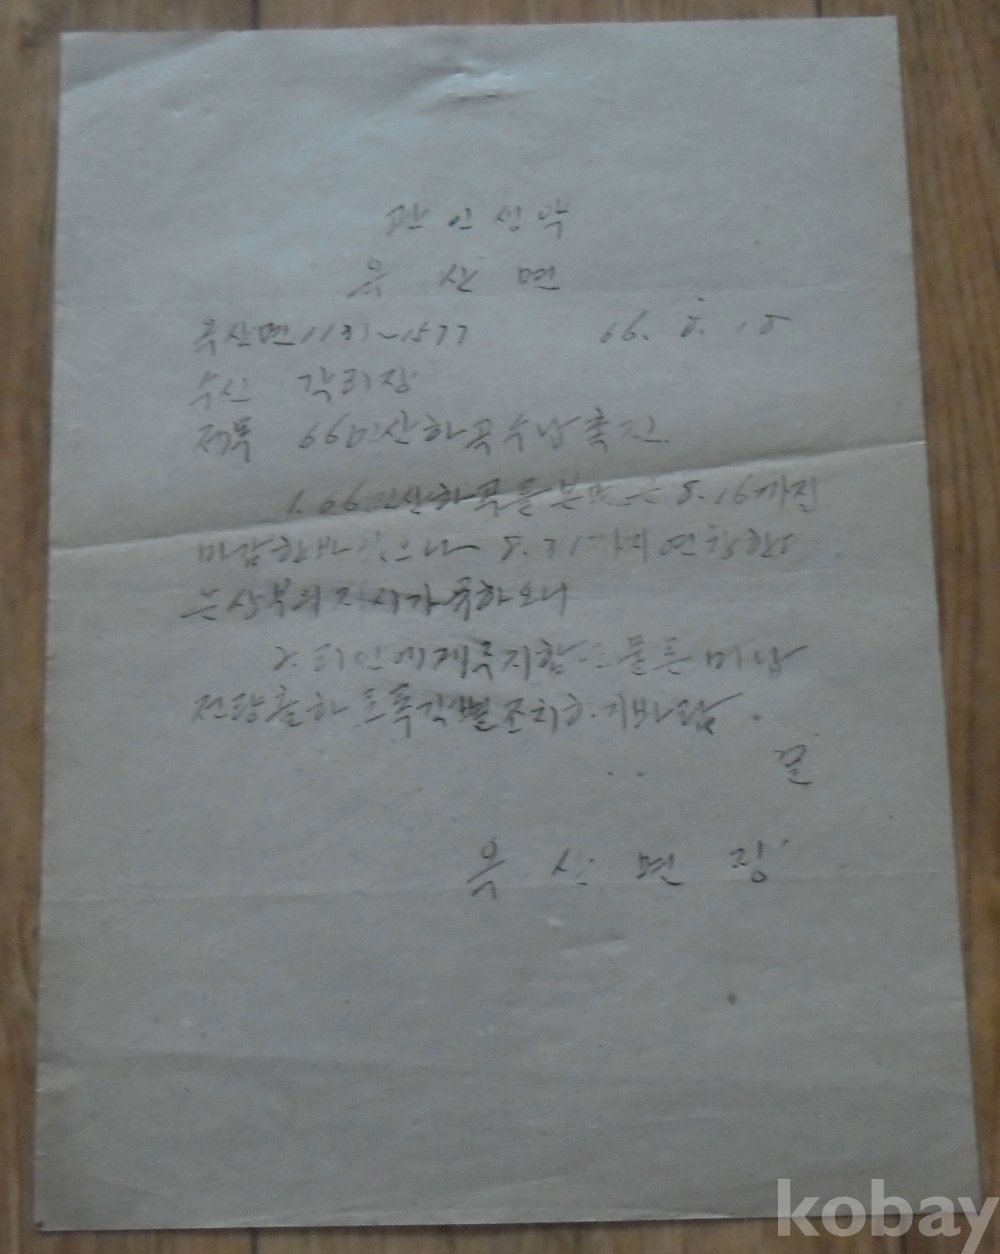 관인생략
옥산면
옥산면1193~1577 66. 8. 18
수신 각리장
제목 66민산하곡수납촉진
1. 66민산하곡을본면은 8.16까지
마감한바있으나 8.31까지연장한다
는상부의지시가유하오니
2. 리민에게주지함은물론미납
전량출하토록각별조치하기바람.
끝
옥산면장
kobay